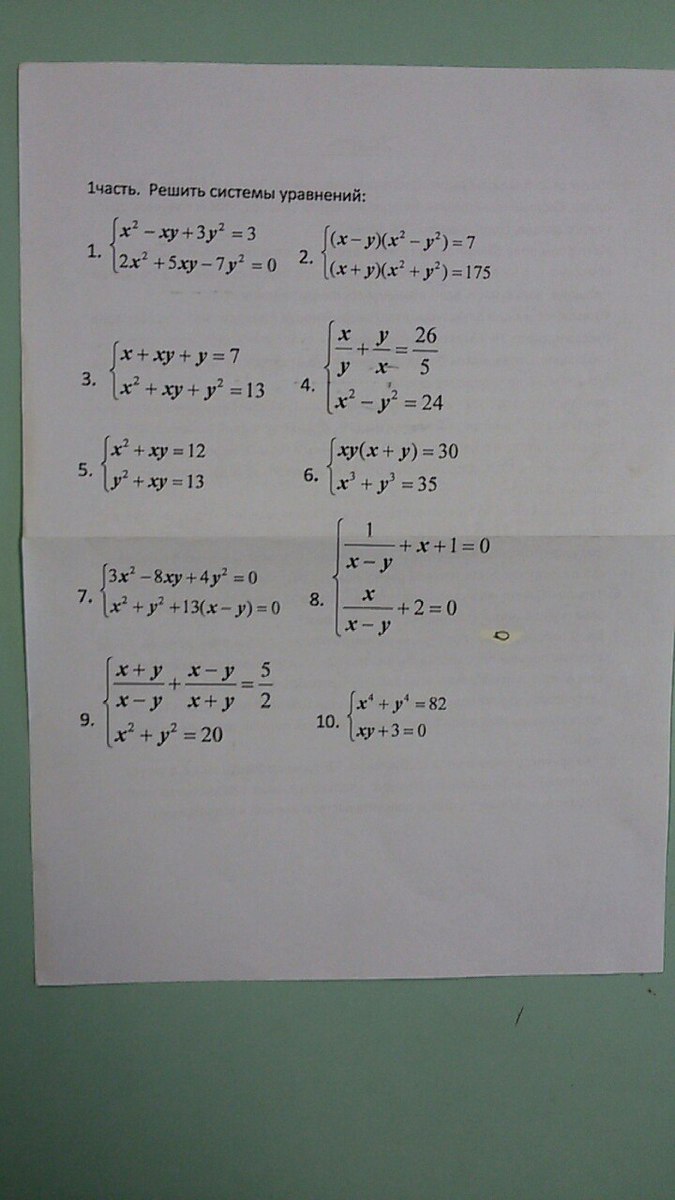 1часть. Решить системы уравнений:
1. { x² − xy + 3y² = 3
2x² + 5xy − 7y² = 0
2. { (x − y)(x² − y²) = 7
(x + y)(x² + y²) = 175
3. { x + xy + y = 7
x² + xy + y² = 13
4. { x/y + y/x = 26/5
x² − y² = 24
5. { x² + xy = 12
y² + xy = 13
6. { xy(x + y) = 30
x³ + y³ = 35
7. { 3x² − 8xy + 4y² = 0
x² + y² + 13(x − y) = 0
8. { 1/(x − y) + x + 1 = 0
x/(x − y) + 2 = 0
9. { (x + y)/(x − y) + (x − y)/(x + y) = 5/2
x² + y² = 20
10. { x⁴ + y⁴ = 82
xy + 3 = 0